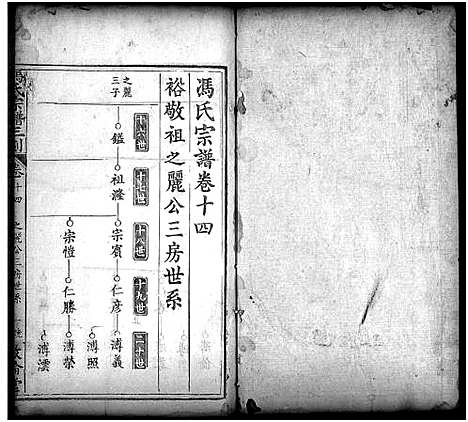 馮氏宗譜卷十四
裕敬祖之麗公三房世系
十六世
十七世
十八世
十九世
二十世
之麗三子
鑑
祖澄
宗賓
仁彦
溥義
溥照
宗愷
仁勝
溥榮
溥澐
馮氏宗譜三刻
卷十四
之麗公三房世系